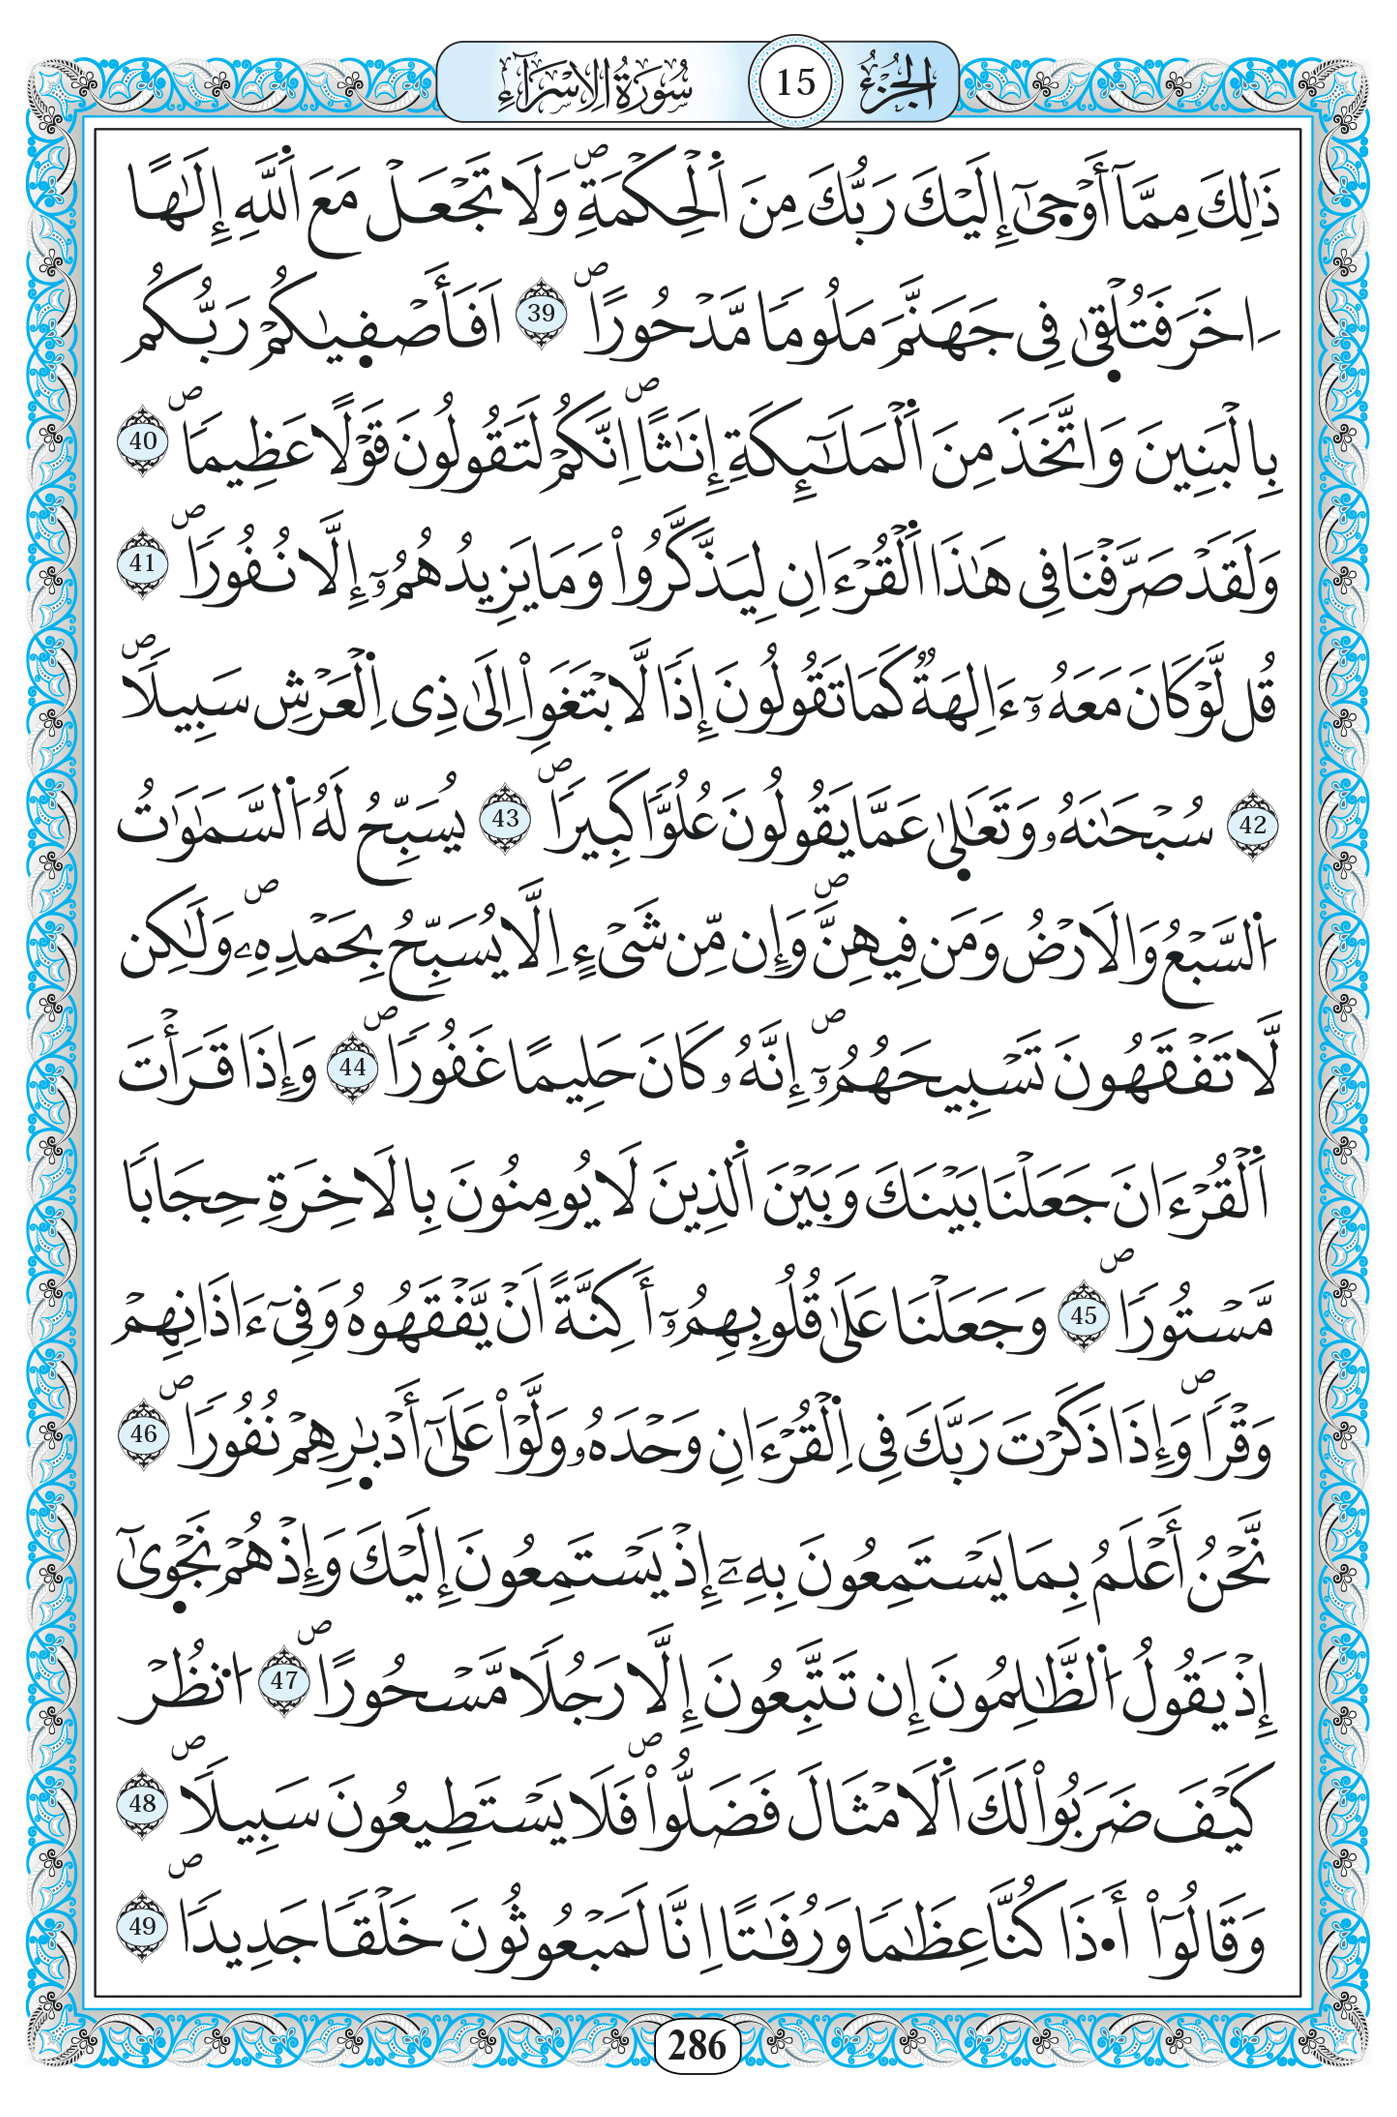 الجُزْءُ 15 سُورَةُ الِاسْرَآءِ
ذَٰلِكَ مِمَّآ أَوْح۪ىٰٓ إِلَيْكَ رَبُّكَ مِنَ اَ۬لْحِكْمَةِۖ وَلَا تَجْعَلْ مَعَ اَ۬للَّهِ إِلَٰهًا
اٰخَرَ فَتُلْق۪ىٰ فِى جَهَنَّمَ مَلُومًا مَّدْحُورًاۖ 39 اَفَأَصْف۪يٰكُمْ رَبُّكُم
بِالْبَنِينَ وَاتَّخَذَ مِنَ اَ۬لْمَلَٰٓئِكَةِ إِنَٰثًاۖ اِنَّكُمْ لَتَقُولُونَ قَوْلًا عَظِيمًاۖ 40
وَلَقَدْ صَرَّفْنَا فِى هَٰذَا اَ۬لْقُرْءَانِ لِيَذَّكَّرُواْ وَمَا يَزِيدُهُمُۥٓ إِلَّا نُفُورًاۖ 41
قُل لَّوْ كَانَ مَعَهُۥٓ ءَالِهَةٌ كَمَا تَقُولُونَ إِذًا لَّابْتَغَوِاْ اِلَىٰ ذِى اِ۬لْعَرْشِ سَبِيلًاۖ
42 سُبْحَٰنَهُۥ وَتَعَٰل۪ىٰ عَمَّا يَقُولُونَ عُلُوًّا كَبِيرًاۖ 43 يُسَبِّحُ لَهُ اُ۬لسَّمَٰوَٰتُ
اُ۬لسَّبْعُ وَالَارْضُ وَمَن فِيهِنَّۖ وَإِن مِّن شَىْءٍ اِلَّا يُسَبِّحُ بِحَمْدِهِۦۖ وَلَٰكِن
لَّا تَفْقَهُونَ تَسْبِيحَهُمُۥٓۖ إِنَّهُۥ كَانَ حَلِيمًا غَفُورًاۖ 44 وَإِذَا قَرَأْتَ
اَ۬لْقُرْءَانَ جَعَلْنَا بَيْنَكَ وَبَيْنَ اَ۬لذِينَ لَا يُومِنُونَ بِالَاخِرَةِ حِجَابًا
مَّسْتُورًاۖ 45 وَجَعَلْنَا عَلَىٰ قُلُوبِهِمُۥٓ أَكِنَّةً اَنْ يَّفْقَهُوهُ وَفِىٓ ءَاذَانِهِمْ
وَقْرًاۖ وَإِذَا ذَكَرْتَ رَبَّكَ فِى اِ۬لْقُرْءَانِ وَحْدَهُۥ وَلَّوْاْ عَلَىٰٓ أَدْبٰ۪رِهِمْ نُفُورًاۖ 46
نَّحْنُ أَعْلَمُ بِمَا يَسْتَمِعُونَ بِهِۦٓ إِذْ يَسْتَمِعُونَ إِلَيْكَ وَإِذْ هُمْ نَجْو۪ىٰٓ
إِذْ يَقُولُ اُ۬لظَّٰلِمُونَ إِن تَتَّبِعُونَ إِلَّا رَجُلًا مَّسْحُورًاۖ 47 اَ۟نظُرْ
كَيْفَ ضَرَبُواْ لَكَ اَ۬لَامْثَالَ فَضَلُّواْۖ فَلَا يَسْتَطِيعُونَ سَبِيلًاۖ 48
وَقَالُوٓاْ أَ.ذَا كُنَّا عِظَٰمًا وَرُفَٰتًا اِنَّا لَمَبْعُوثُونَ خَلْقًا جَدِيدًاۖ 49
286